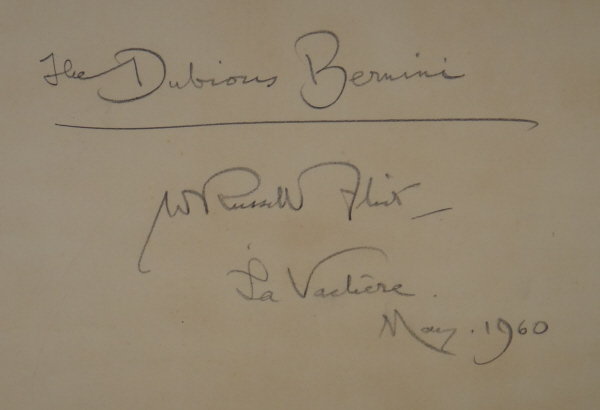 The Dubious Bernini
W Russell Flint
La Vachère.
May. 1960